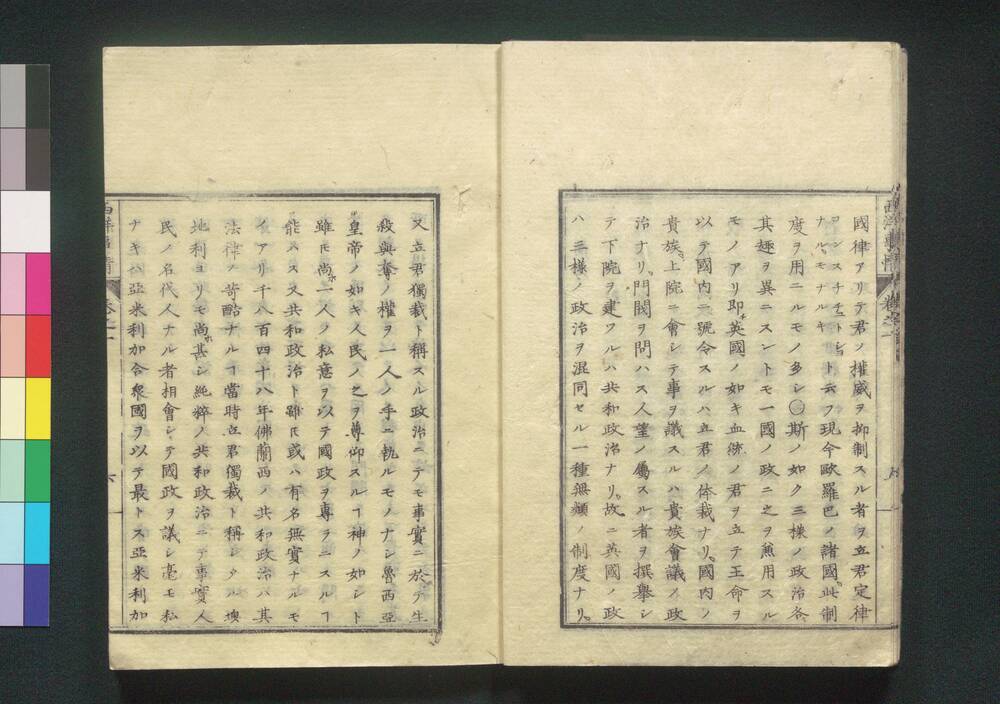 國律アリテ君ノ權威ヲ抑制スル者ヲ立君定律
コンスチチューショナル モナルキ ト云フ現今歐羅巴ノ諸國此制
度ヲ用ニルモノ多シ〇斯ノ如ク三樣ノ政治各
其趣ヲ異ニスントモ一國ノ政ニ之ヲ兼用スル
モノアリ即英國ノ如キ血統ノ君ヲ立テ王命ヲ
以テ國内ニ號令スルハ立君ノ体裁ナリ國内ノ
貴族上院ニ會シテ事ヲ議スルハ貴族會議ノ政
治ナリ門閥ヲ問ハス人望ノ屬スル者ヲ撰擧シ
テ下院ヲ建ツルハ共和政治ナリ故ニ英國ノ政
ハ三樣ノ政治ヲ混同セル一種無類ノ制度ナリ
西洋事情 卷之一
又立君獨裁ト稱スル政治ニテモ事實ニ於テ生
殺與奪ノ權ヲ一人ノ手ニ執ルモノナシ魯西亞
皇帝ノ如キ人民ノ之ヲ尊仰スルヿ神ノ如シト
雖𪜈尚一人ノ私意ヲ以テ國政ヲ專ラニスルヿ
能ハス又共和政治ト雖𪜈或ハ有名無實ナルモ
ノアリ千八百四十八年佛蘭西ノ共和政治ハ其
法律ノ苛酷ナルヿ當時立君獨裁ト稱シタル墺
地利ヨリモ尚甚シ純粹ノ共和政治ニテ事實人
民ノ名代人ナル者相會シテ國政ヲ議シ毫モ私
ナキハ亞米利加合衆國ヲ以テ最トス亞米利加
西洋事情 卷之一 六